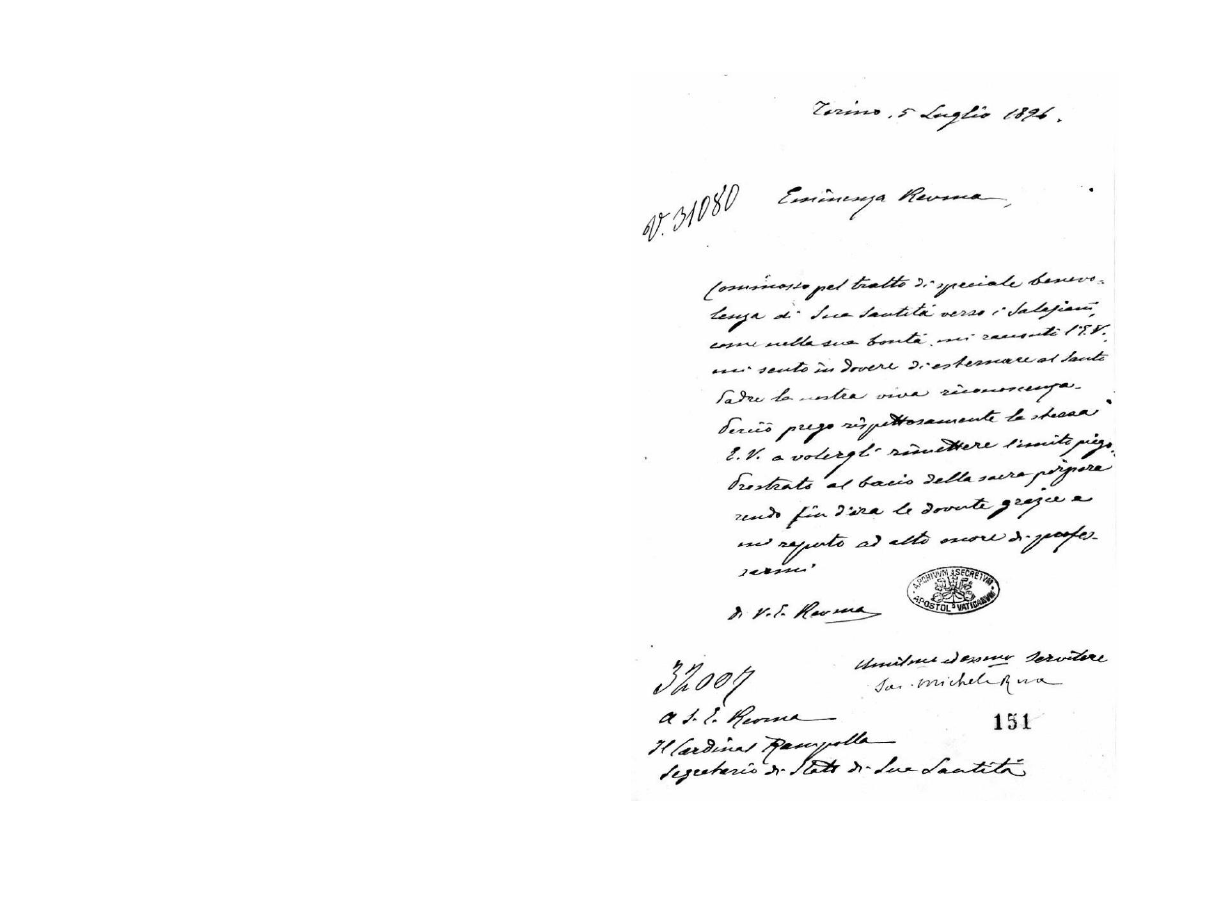 Torino, 5 Luglio 1896.
N. 31080
Eminenza Revma,
Commosso pel tratto di speciale benevo-
lenza di Sua Santità verso i Salesiani,
come nella sua bontà mi racconta l'E.V.
mi sento in dovere di esternare al Santo
Padre la nostra viva riconoscenza.
Perciò prego rispettosamente la stessa
E.V. a volergli rimettere l'unito piego.
Prostrato al bacio della sacra porpora
rendo fin d'ora le dovute grazie e
mi reputo ad alto onore di profes-
sarmi
di V.E. Revma
ARCHIVVM SECRETVM
APOSTOL. VATICANVM
servitore
Sac. Michele Rua
32007
151
A S. E. Revma
Il Cardinal Rampolla
Segretario di Stato di Sua Santità